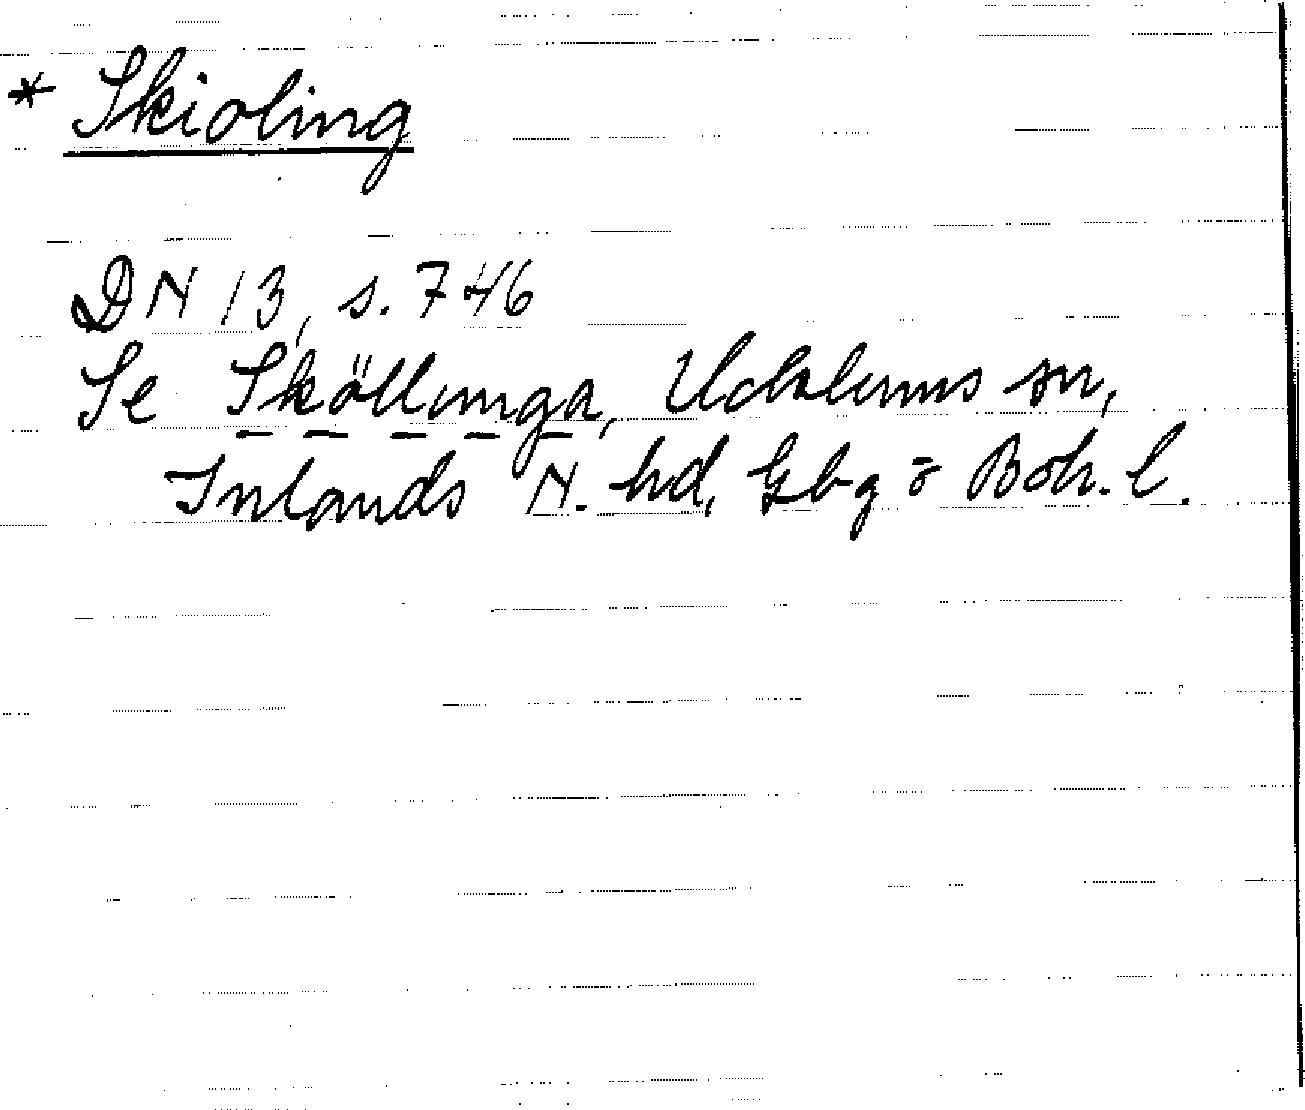 * Skioling
DN 13, s. 746
Se Sköllunga, Ucklums sn,
Inlands N. hd, Gbg o Boh. l.